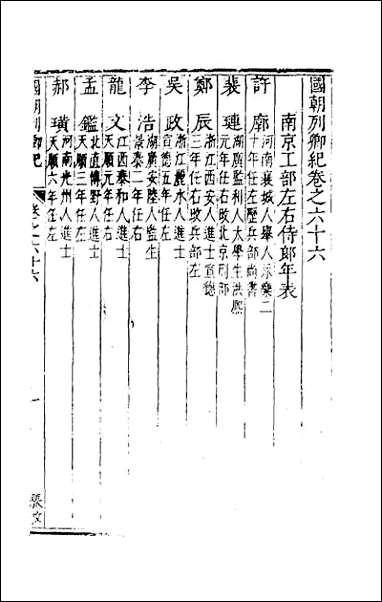 國朝列卿紀卷之六十六
南京工部左右侍郎年表
許廓 河南襄城人舉人永樂二
十年任左歷兵部尚書
裴璉 湖廣監利人太學生洪熙
元年任右改北京刑部
鄭辰 浙江西安人進士宣德
三年任右改兵部左
吳政 浙江麗水人進士
宣德五年任左
李浩 湖廣安陸人監生
景泰二年任右
龍文 江西泰和人進士
天順元年任右
孟鑑 北直博野人進士
天順三年任左
郝璜 河南光州人進士
天順六年任左
國朝列卿紀 卷之六十六 一